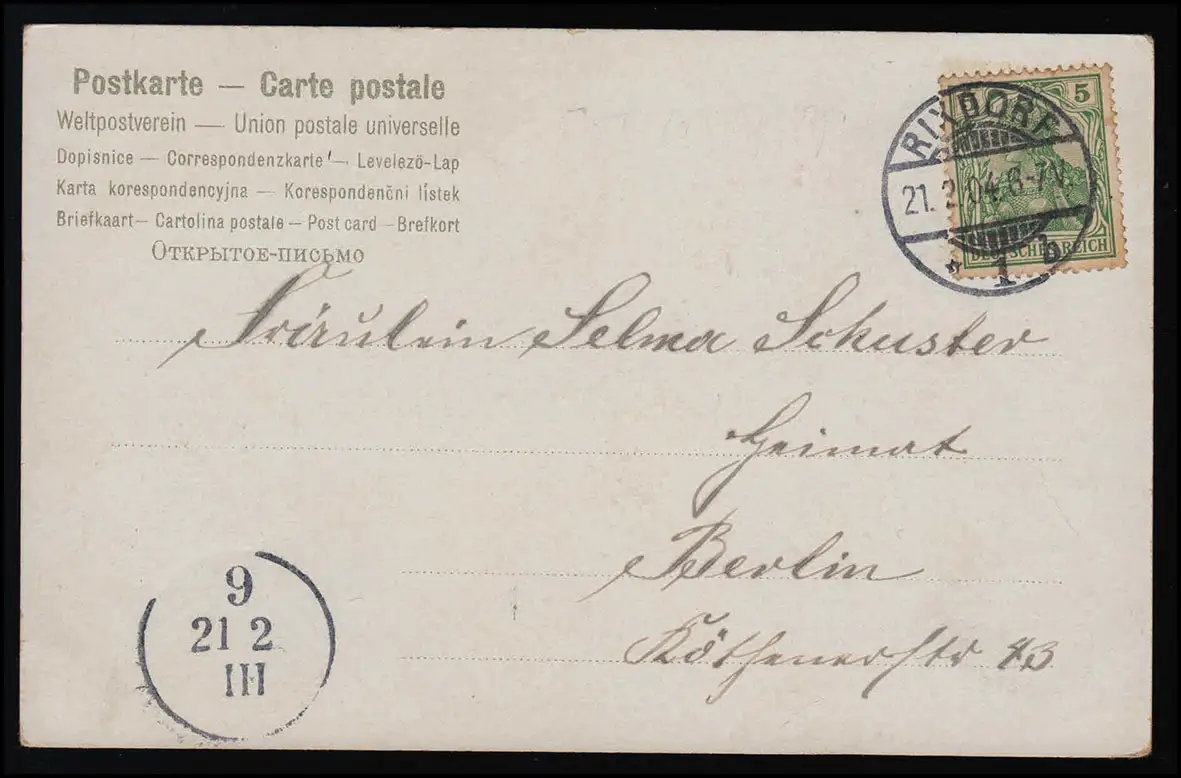 Postkarte — Carte postale
Weltpostverein — Union postale universelle
Dopisnice — Correspondenzkarte — Levelező-Lap
Karta korespondencyjna — Korespondenční lístek
Briefkaart — Cartolina postale — Post card — Brefkort
Открытое-письмо
5
RIXDORF
21.2.04.6-7V.
* 1 b
DEUTSCHES REICH
Fräulein Selma Schuster
Heimat
Berlin
Köthenerstr 43
9
21 2
III